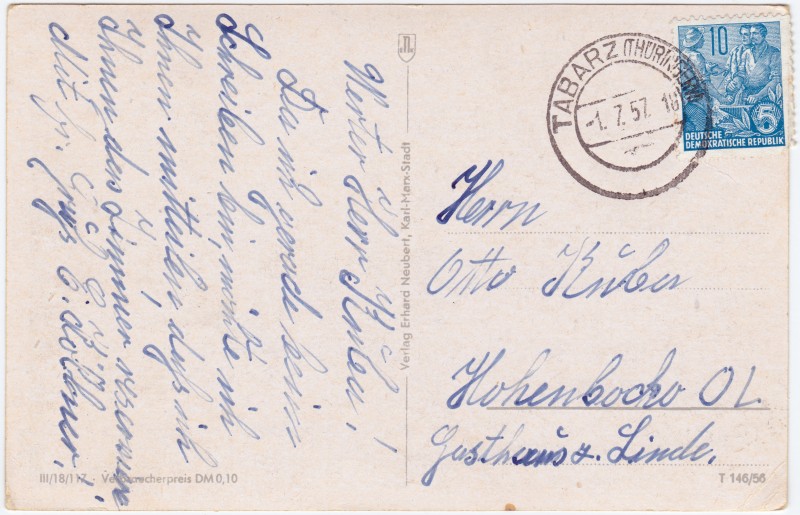 Werter Herr Küber!
Da ich gerade beim
Schreiben bin, möchte ich
Ihnen mitteilen, daß ich
Ihnen das Zimmer reserviere
Mit fr. Gruß E. Döllner.
Verlag Erhard Neubert, Karl-Marx-Stadt
TABARZ (THÜRINGEN)
-1. 7. 57. 18
10
5
DEUTSCHE
DEMOKRATISCHE REPUBLIK
Herrn
Otto Küber
Hohenbocka OL
Gasthaus z. Linde.
III/18/117 Verbraucherpreis DM 0,10
T 146/56